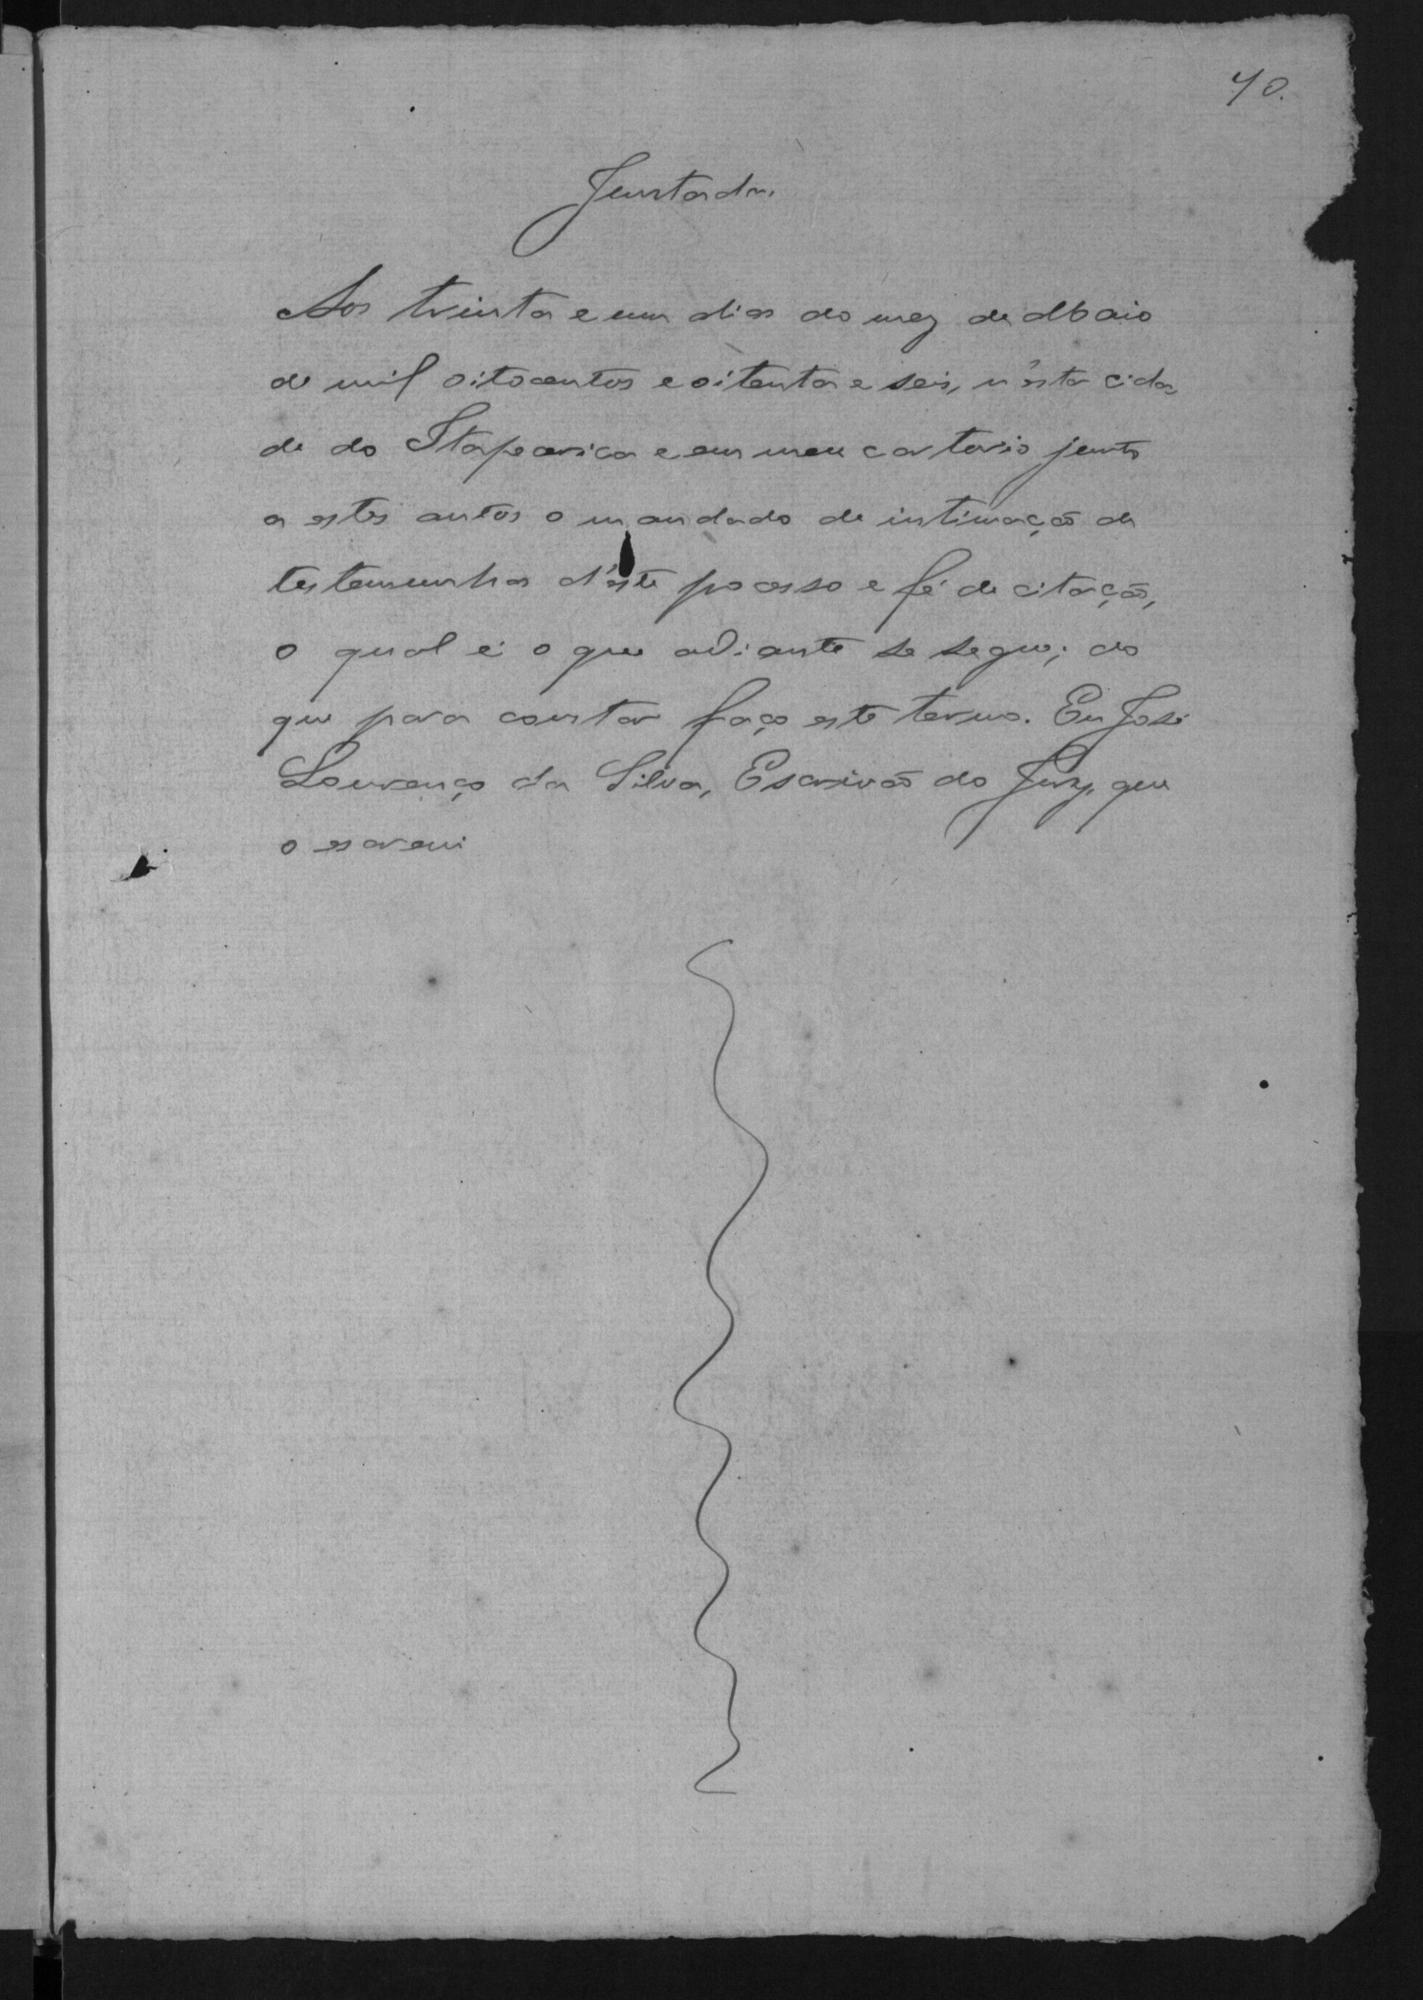 40.
Juntada.
Aos trinta e um dias do mez de Maio
de mil oitocentos e oitenta e seis, n'esta cida
de do Itapecerica e em meu cartorio junto
a estes autos o mandado de intimação de
testemunhas d'este processo e fé de citação,
o qual é o que adiante se segue; do
que para constar faço este termo. Eu José
Lourenço da Silva, Escrivão do Jury, que
o escrevi